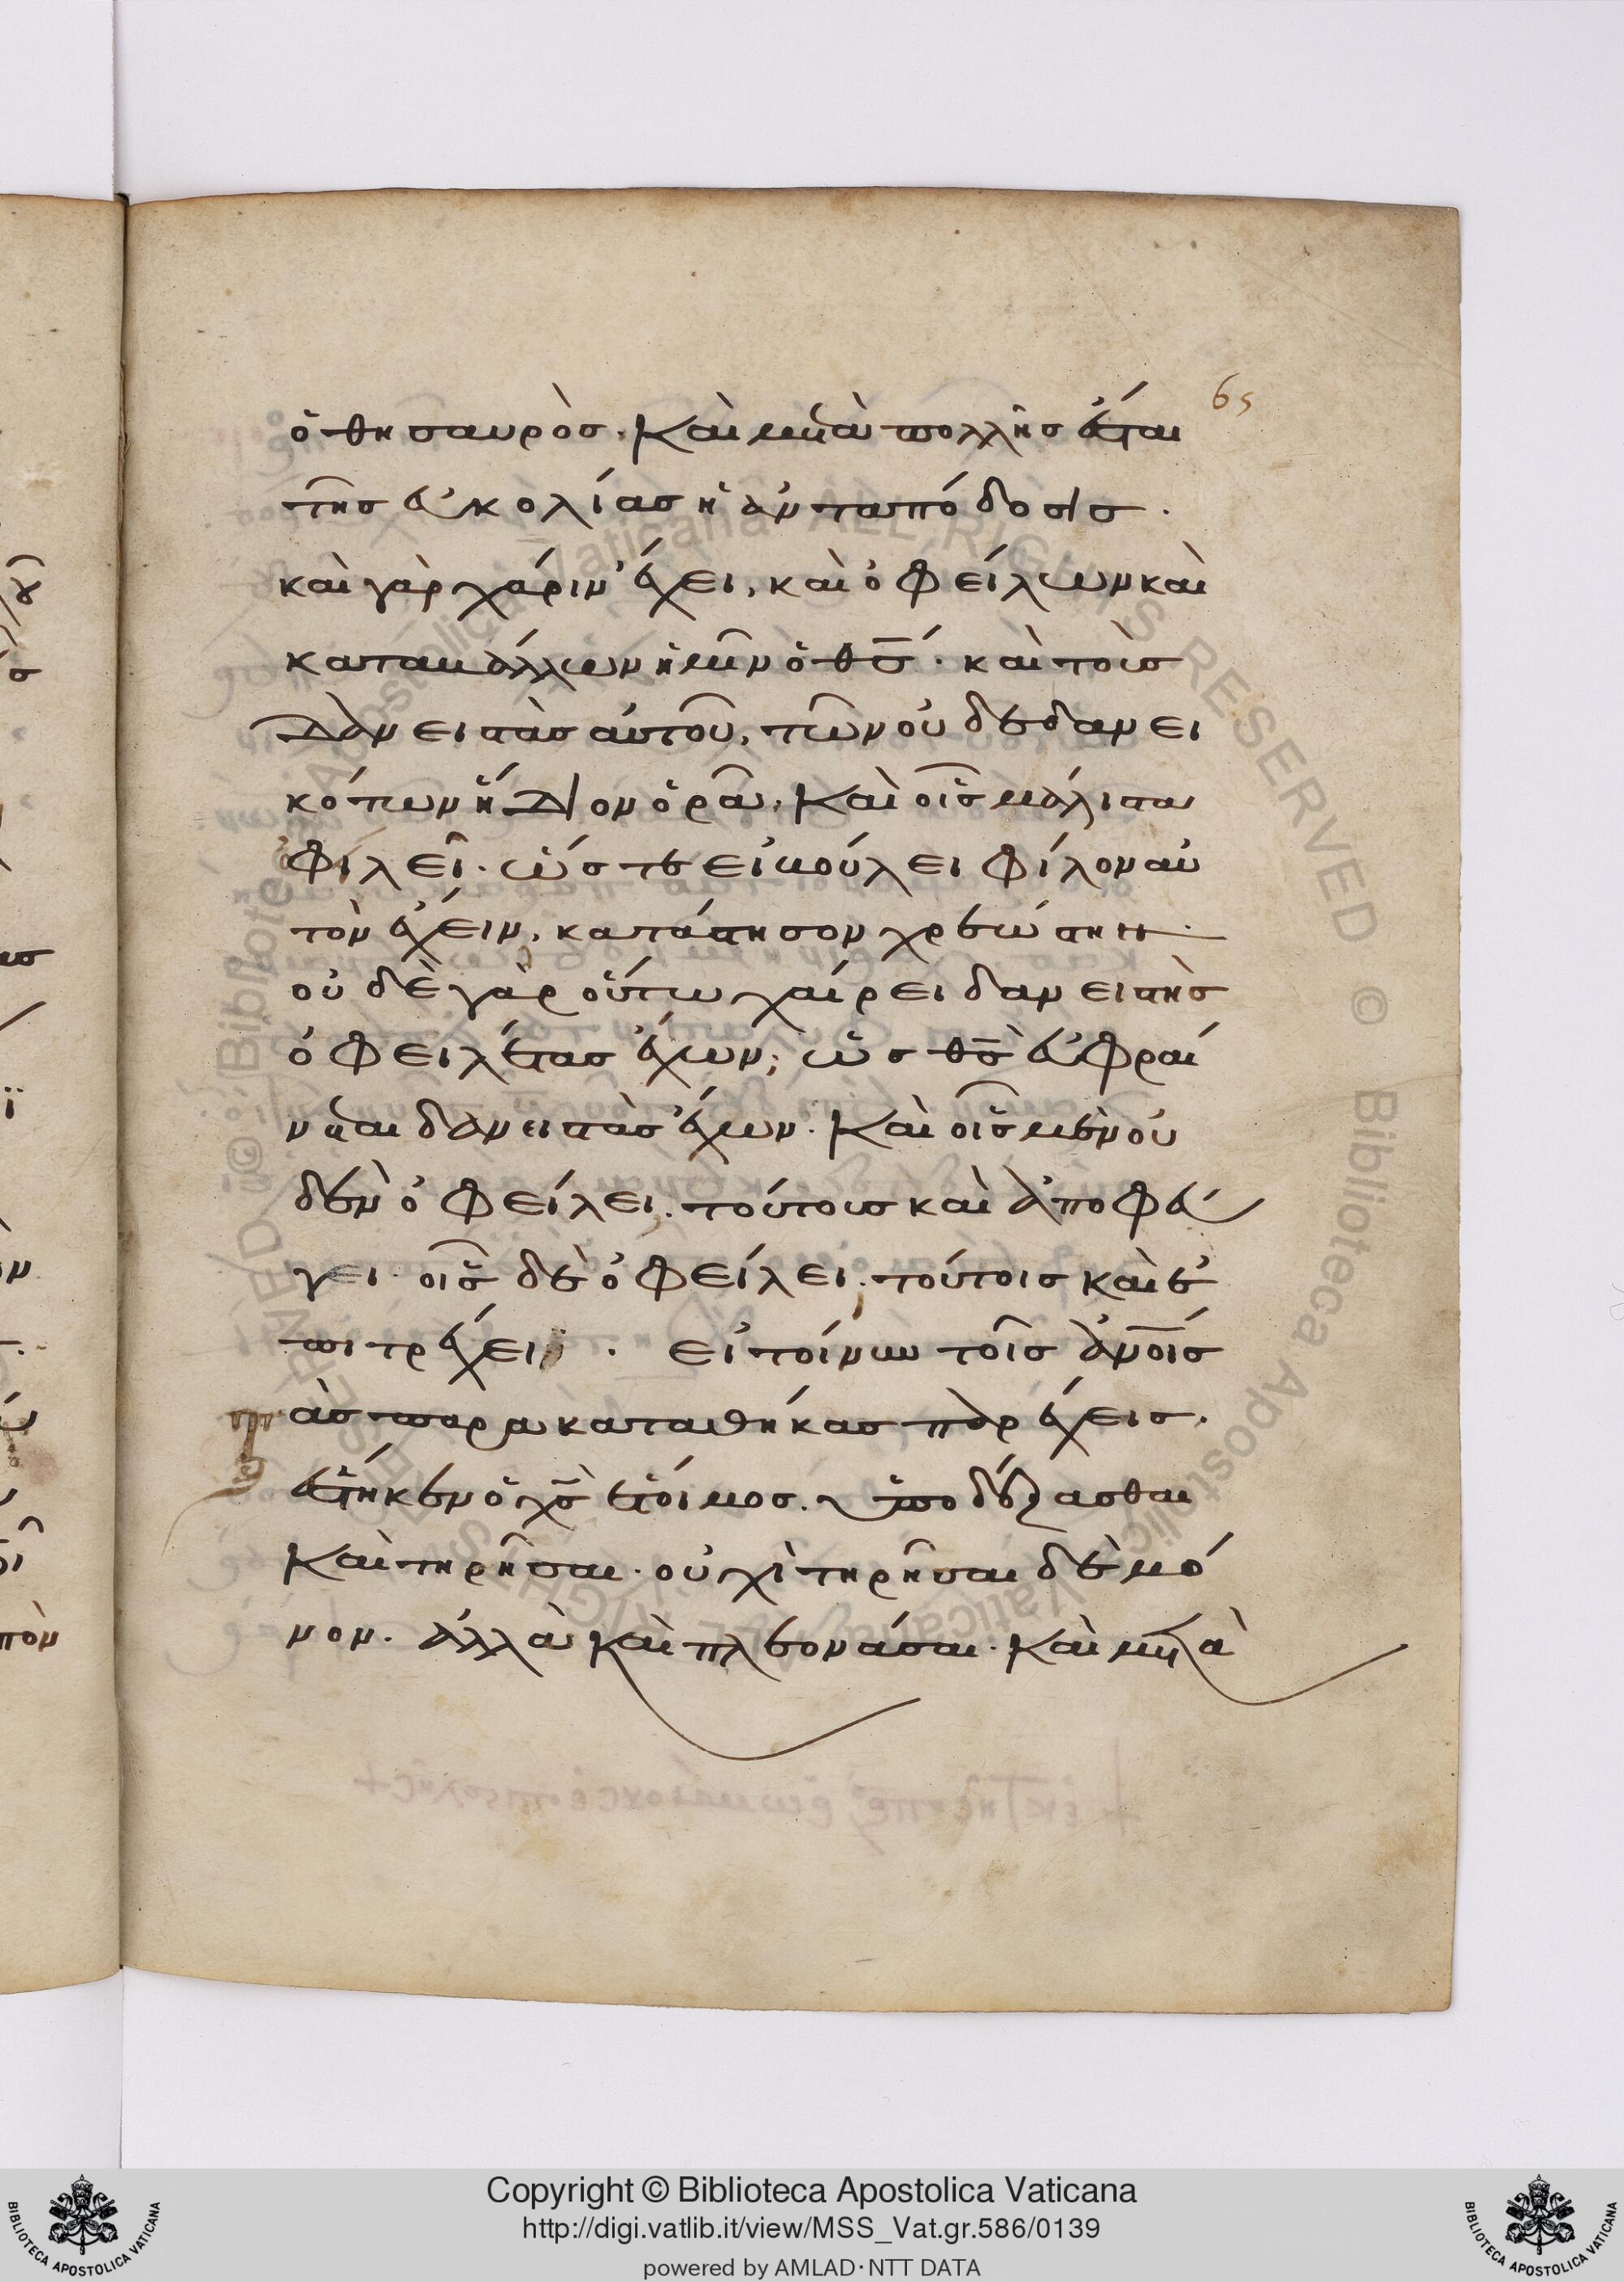 65
ὁ θησαυρὸσ. καὶ μετὰ πολλῆσ ἔσται
τῆσ εὐκολίασ ἡ ἀνταπόδοσισ.
καὶ γὰρ χάριν ἔχει, καὶ ὀφείλων καὶ
καταβάλλων ἡμῖν ὁ θσ. καὶ τοὺσ
δανειστὰσ αὐτοῦ, τῶν οὐ δεδανει
κότων ἥδιον ὁρᾶ. καὶ οἷσ μάλιστα
φιλεῖ. ὥστε εἰ βούλει φίλον αὐ
τὸν ἔχειν, κατάστησον χρεώστην.
οὐδὲ γὰρ οὕτω χαίρει δανειστὴσ
ὀφειλέτασ ἔχων, ὡσ θσ εὐφραί
νεται δανειστὰσ ἔχων. καὶ οἷσ μὲν οὐ
δὲν ὀφείλει. τούτουσ καὶ ἀποφεύ
γει. οἷσ δὲ ὀφείλει, τούτοισ καὶ ἐ
πιτρέχει. εἰ τοίνυν τοῖσ ἀνοισ
ἃσ παρακαταθήκασ παρέχεισ.
ἕστηκεν ὁ χσ ἕτοιμοσ. ὑποδέξασθαι
καὶ τηρῆσαι. οὐχὶ τηρῆσαι δὲ μό
νον. ἀλλὰ καὶ πλεονάσαι. καὶ μετὰ
Copyright © Biblioteca Apostolica Vaticana
http://digi.vatlib.it/view/MSS_Vat.gr.586/0139
powered by AMLAD·NTT DATA